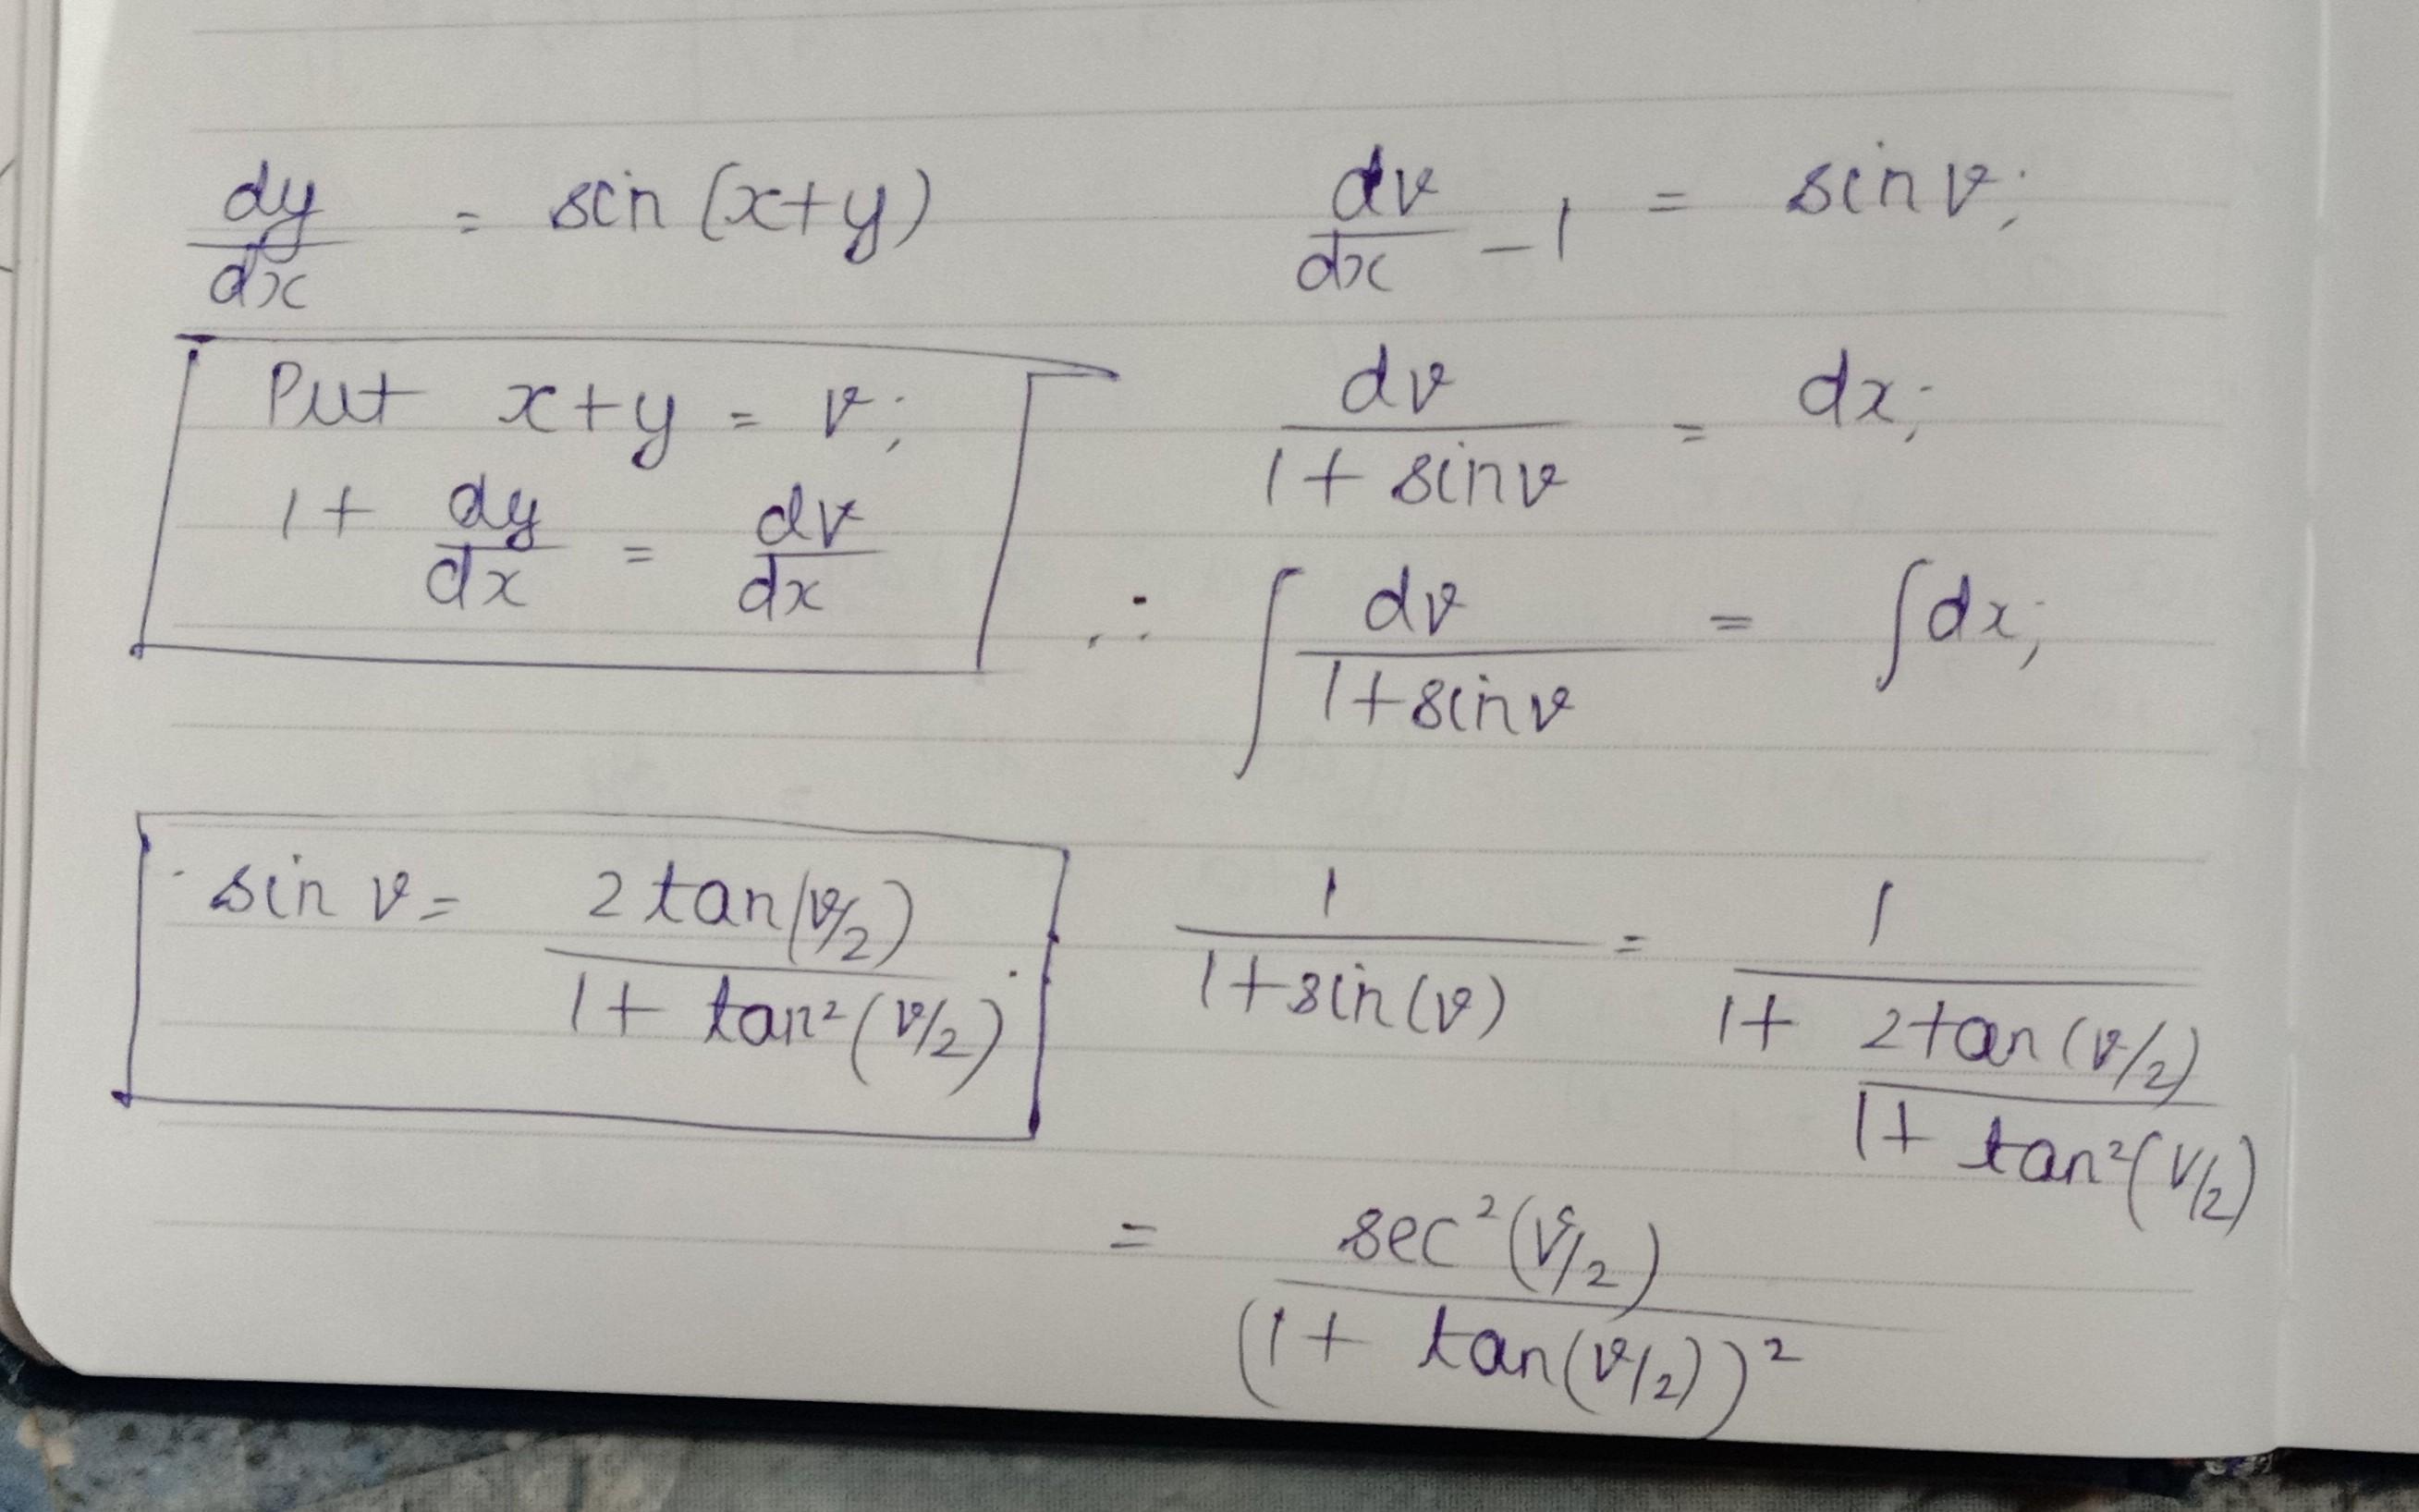 dy/dx = sin (x+y)
Put x+y = v;
1 + dy/dx = dv/dx
dv/dx - 1 = sin v;
dv/(1 + sin v) = dx;
∴ ∫ dv/(1+sin v) = ∫dx;
sin v = 2 tan(v/2)/(1 + tan²(v/2)).
1/(1+sin(v)) = 1/(1+ 2tan(v/2)/(1+ tan²(v/2)))
= sec²(v/2)/(1+ tan(v/2))²